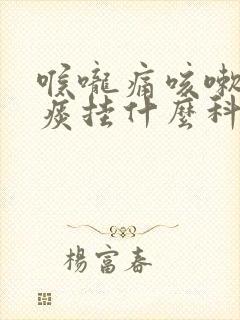 喉嚨痛咳嗽
痰挂什麼科
楊富春